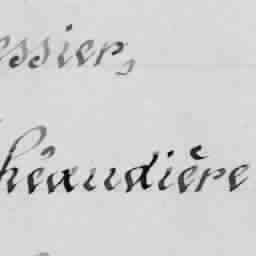 essier,
héaudière